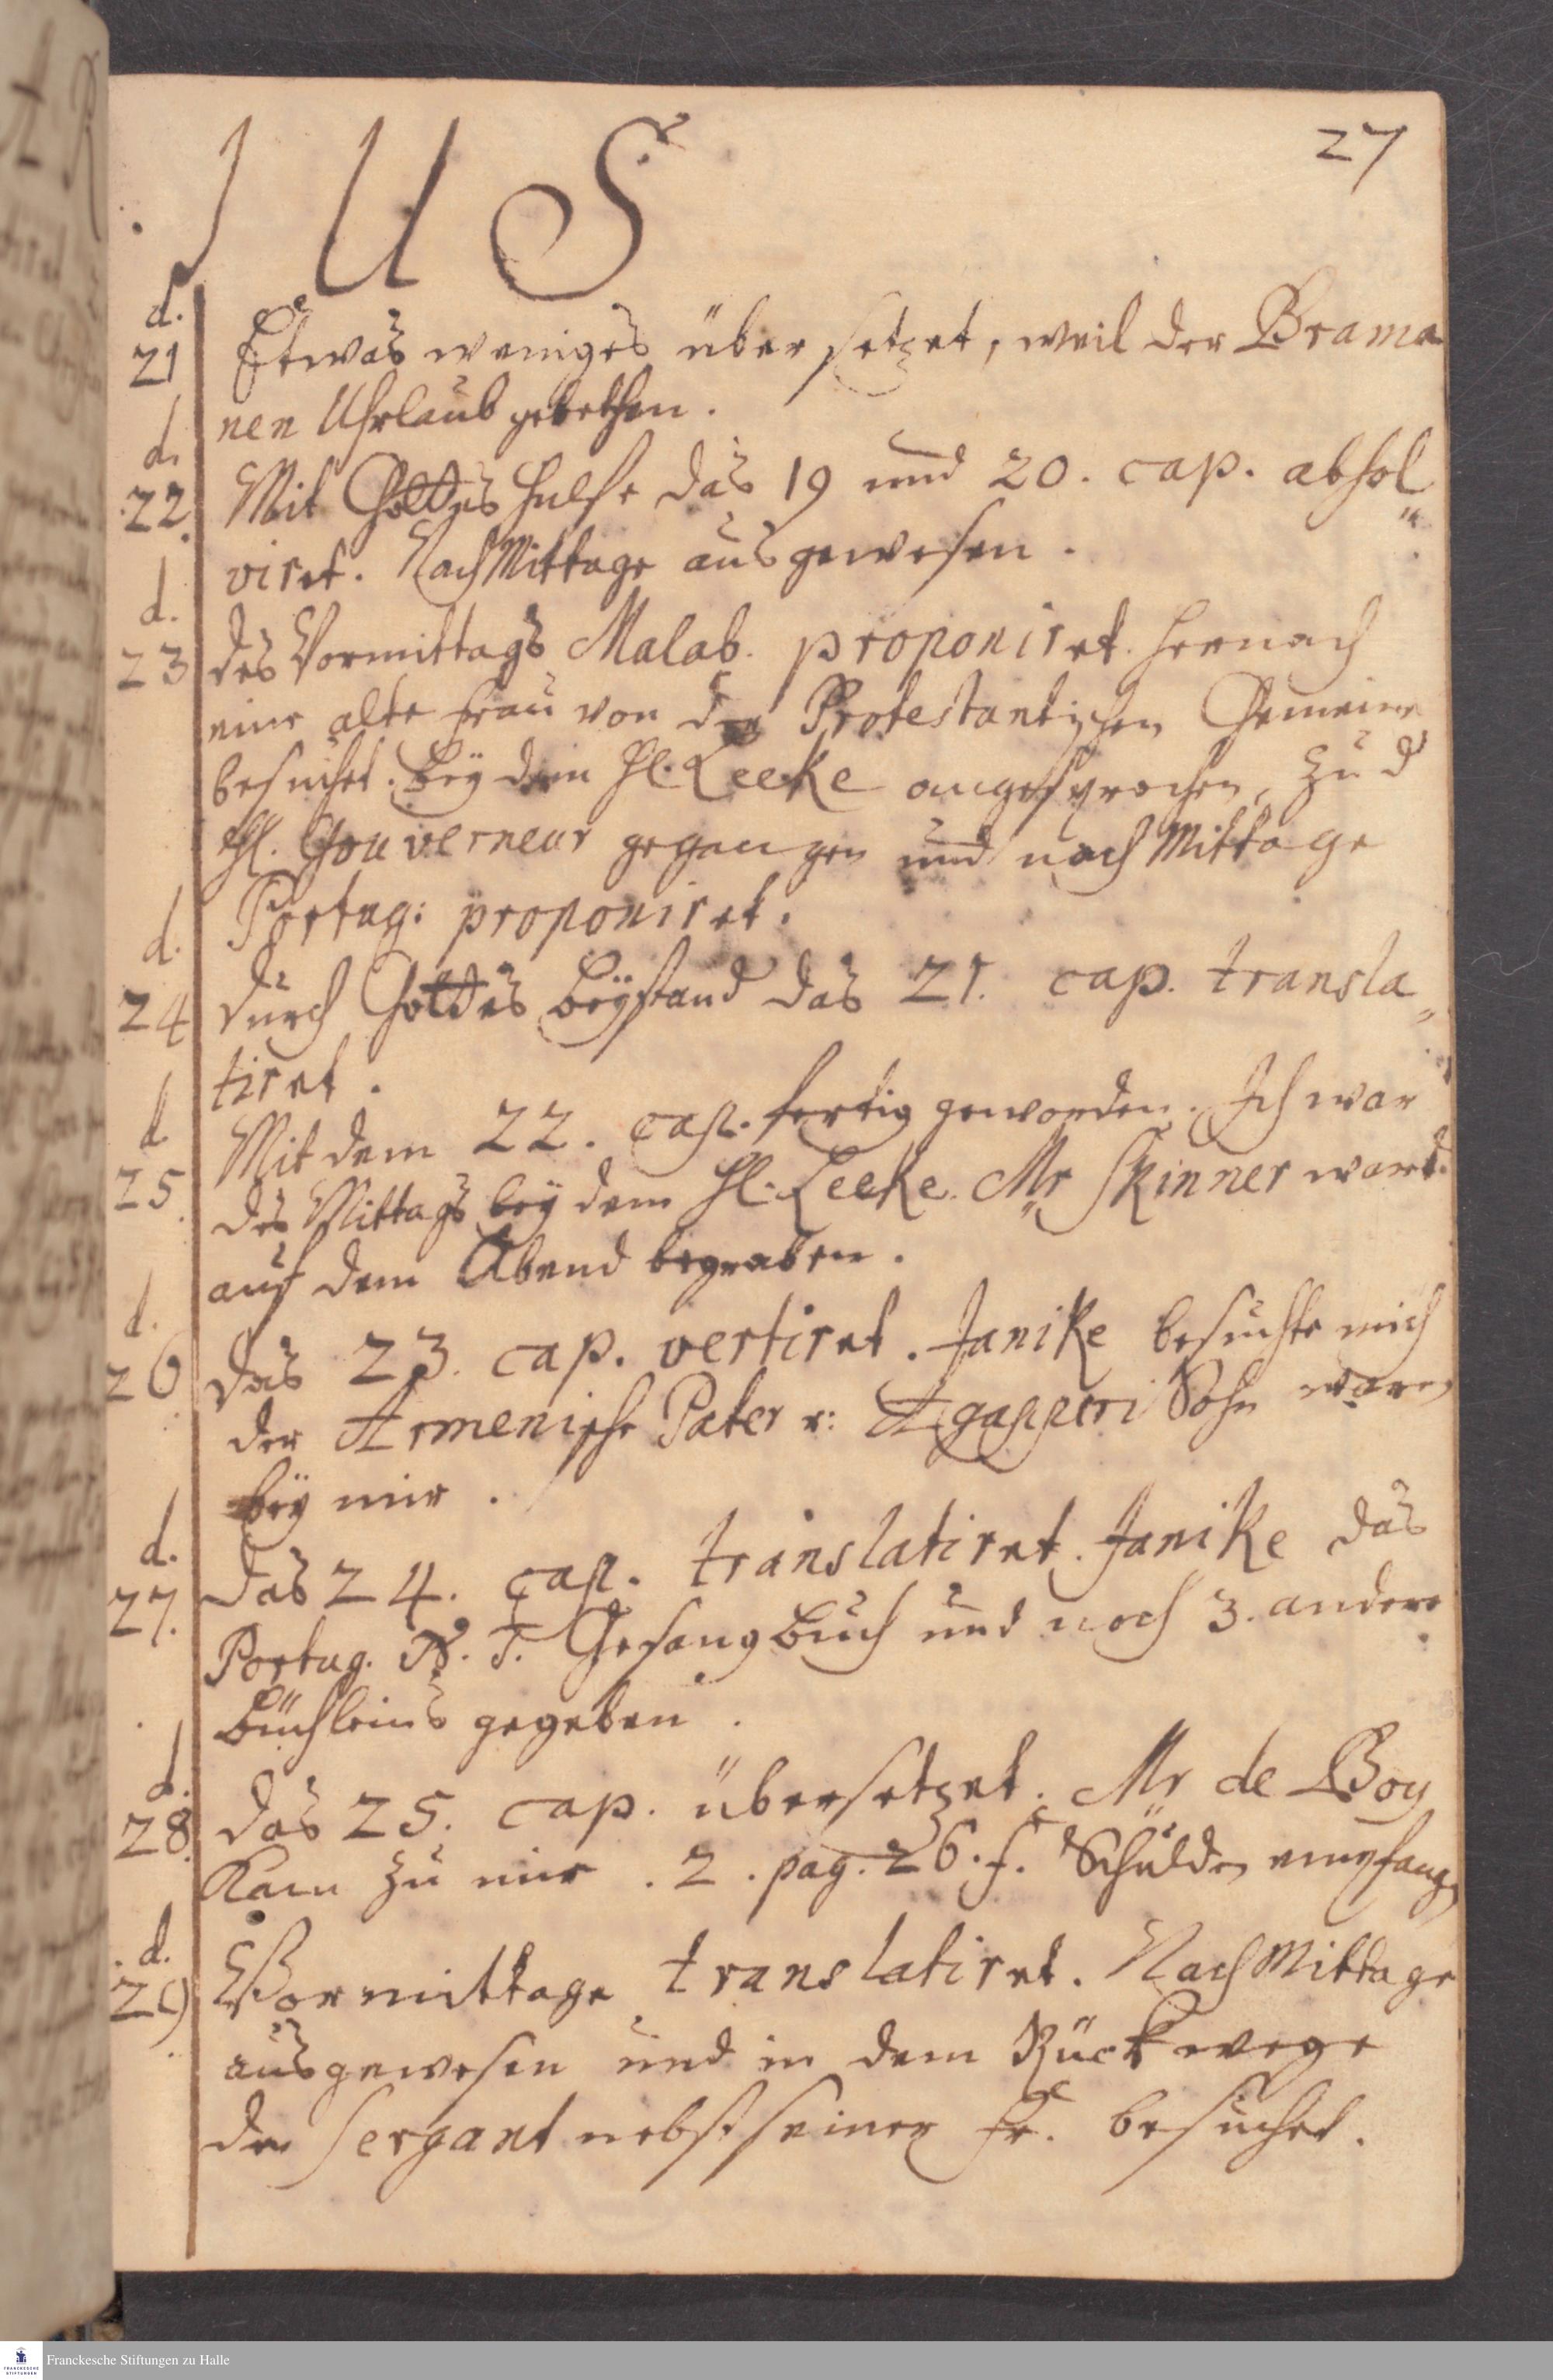 27
I U S
d. 21 Etwas weniges übersetzet, weil der Brama
nen Uhrlaub gebethen.
d. 22. Mit Gottes Hülfe das 19 und 20. cap. absol„
viret. NachMittage ausgewesen.
d. 23 des Vormittags Malab. proponiret. Hernach
eine alte Frau von der Protestantischen Gemeine
besuchet. Bey dem Hl. Leeke angesprochen, zu d
Hl. Gouverneur gegangen und nachMittage
Portug: proponiret.
d. 24 durch Gottes Beystand das 21. cap. transla„
tiret.
d. 25 Mit dem 22. cap. fertig geworden. Ich war
des Mittags bey dem Hl. Leeke. Mr Skinner ward
auf dem Abend begraben.
d. 26 das 23. cap. vertiret. Janike besuchte mich
der Armenische Pater u: Agapperi Sohn waren
bey mir.
d. 27. das 24. cap. translatiret. Janike das
Portug. N. T. Gesangbuch und noch 3. andere
Büchleins gegeben.
d. 28. das 25. cap. übersetzet. Mr de Boy
Kam zu mir. 2. pag. 26. f. Schulden empfang
d. 29 Vormittage translatiret. NachMittage
ausgewesen und in dem Rückwege
den Sergant nebst seiner Fr. besuchet.
FRANCKESCHE STIFTUNGEN
Franckesche Stiftungen zu Halle